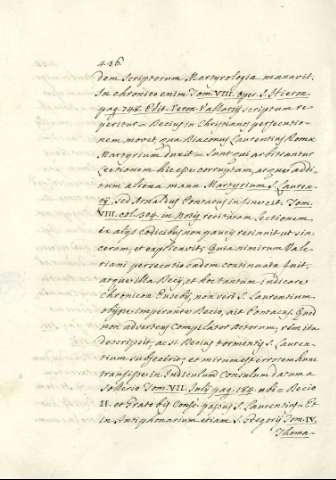 436
dem Scriptorum Martyrologia manavit.
In chronico enim Tom VIII. oper. S. Hieron.
pag. 748. Edit. Veron. Vallarsii scriptum re-
peritur = Decius in Christianos persecutio-
nem movet qua Diaconus Laurentius Romæ
Martyrium duxit = Sunt qui arbitrantur
Lectionem hic esse corruptam, atque addi-
tum aliena manu Martyrium S. Lauren-
tij. Sed Arnaldus Pontacus in suis not. Tom.
VIII. col. 304. in prog. recitatam Lectionem
ex alijs Codicibus non paucis retinuit ut sin-
ceram, et explicuit; Quia nimirum Vale-
riani persecutio eadem continuata fuit,
atque illa Decij, et hoc tantum indicare
Chronicon Eusebij, non verò S. Laurentium
obijsse imperante Decio, ait Pontacus. Quod
non advertens Compilator Actorum, rem ita
descripsit, ac si Decius tormentis S. Lauren-
tium subjecerit; et mirum est errorem hunc
transijsse in Indiculum Consulum datum a
Sollerio Tom. VII. Julij pag. 185. ubi = Decio
II. et Grato his Consб. passus S. Laurentius = Et
in Antiphonarium etiam S. Gregorij Tom. IV.
Thoma-